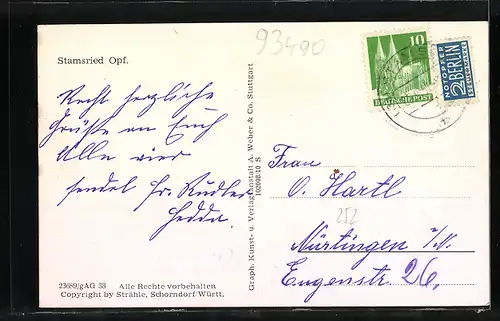 93490
Stamsried Opf.
Recht herzliche
Grüße an Euch
Alle vier
sendet Fr.
Hedda.
23689/gAG 33 Alle Rechte vorbehalten
Copyright by Strähle, Schorndorf-Württ.
Graph. Kunst- u. Verlagsanstalt A. Weber & Co. Stuttgart
10
DEUTSCHE POST
NOTOPFER
2 BERLIN
STEUERMARKE
Frau
O. Hartl
252
Nürtingen a/N.
Eugenstr. 26.